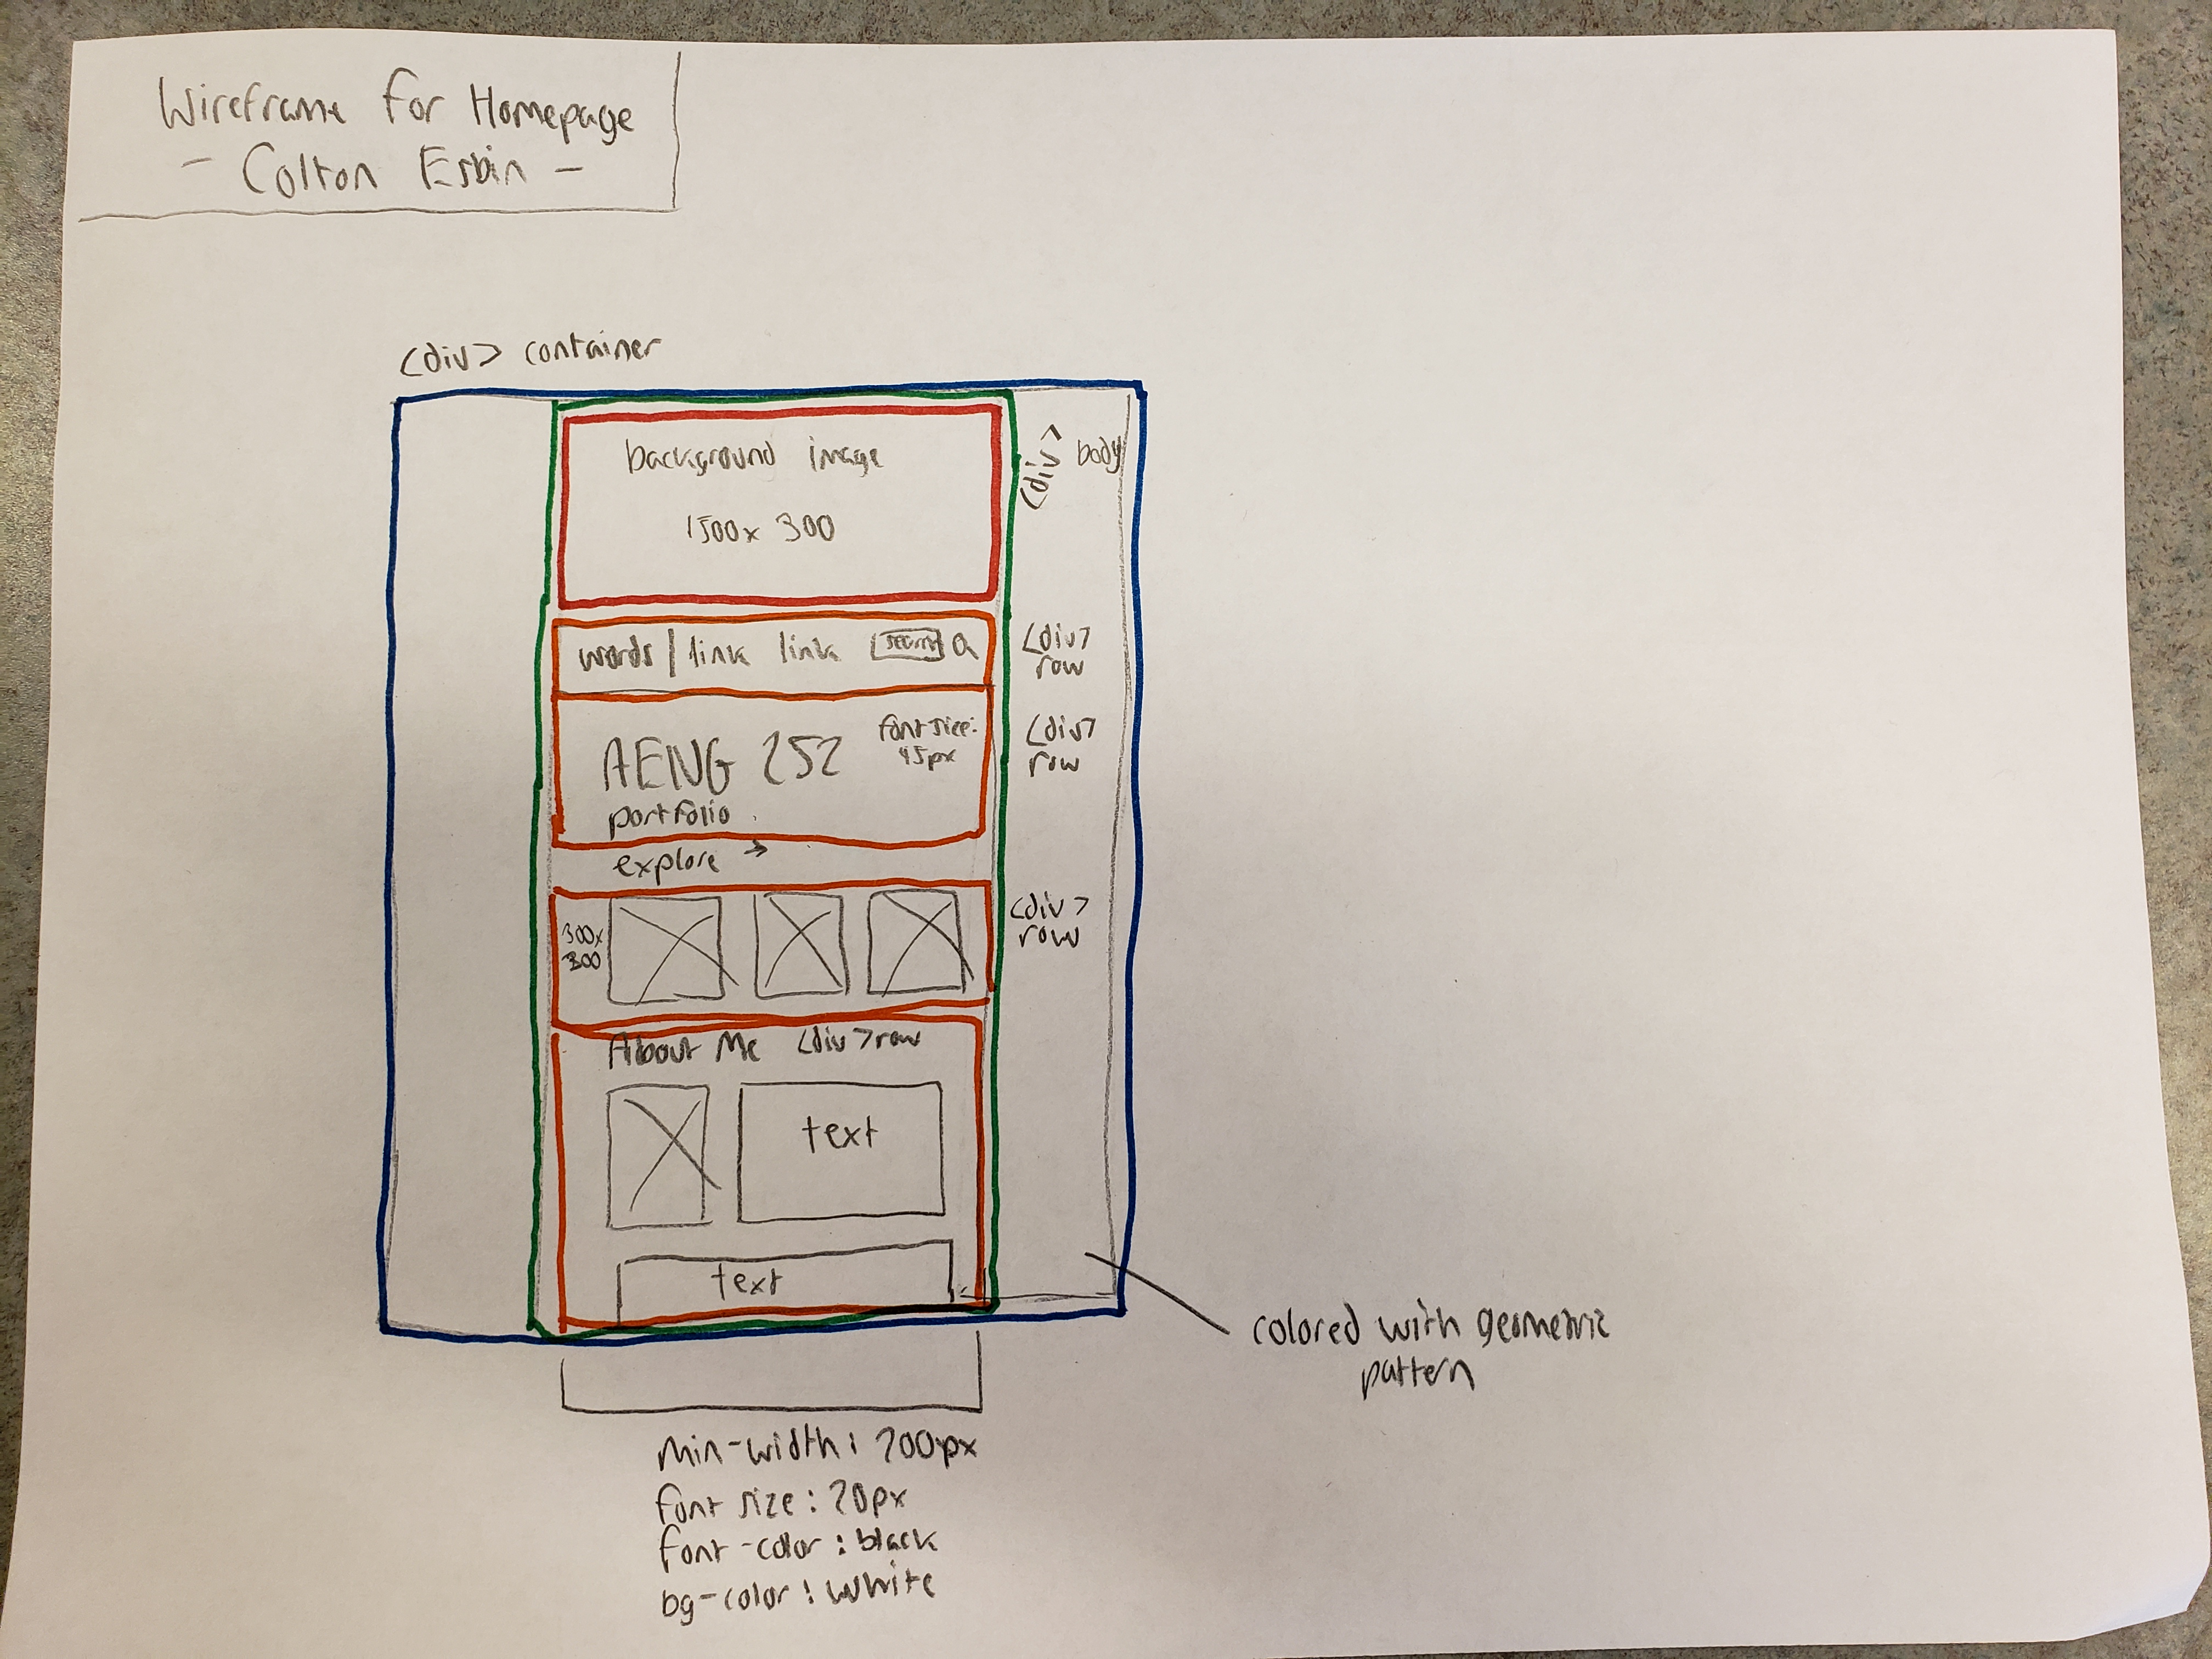 Wireframe for Homepage
- Colton Esbin -
<div> container
background image
1500x 300
<div> body
words | link link search
<div>
row
AENG 252
portfolio
font size:
45px
<div>
row
explore →
300x
300
<div>
row
About Me <div> row
text
text
colored with geometric
pattern
min-width: 700px
font size: 20px
font-color: black
bg-color: white